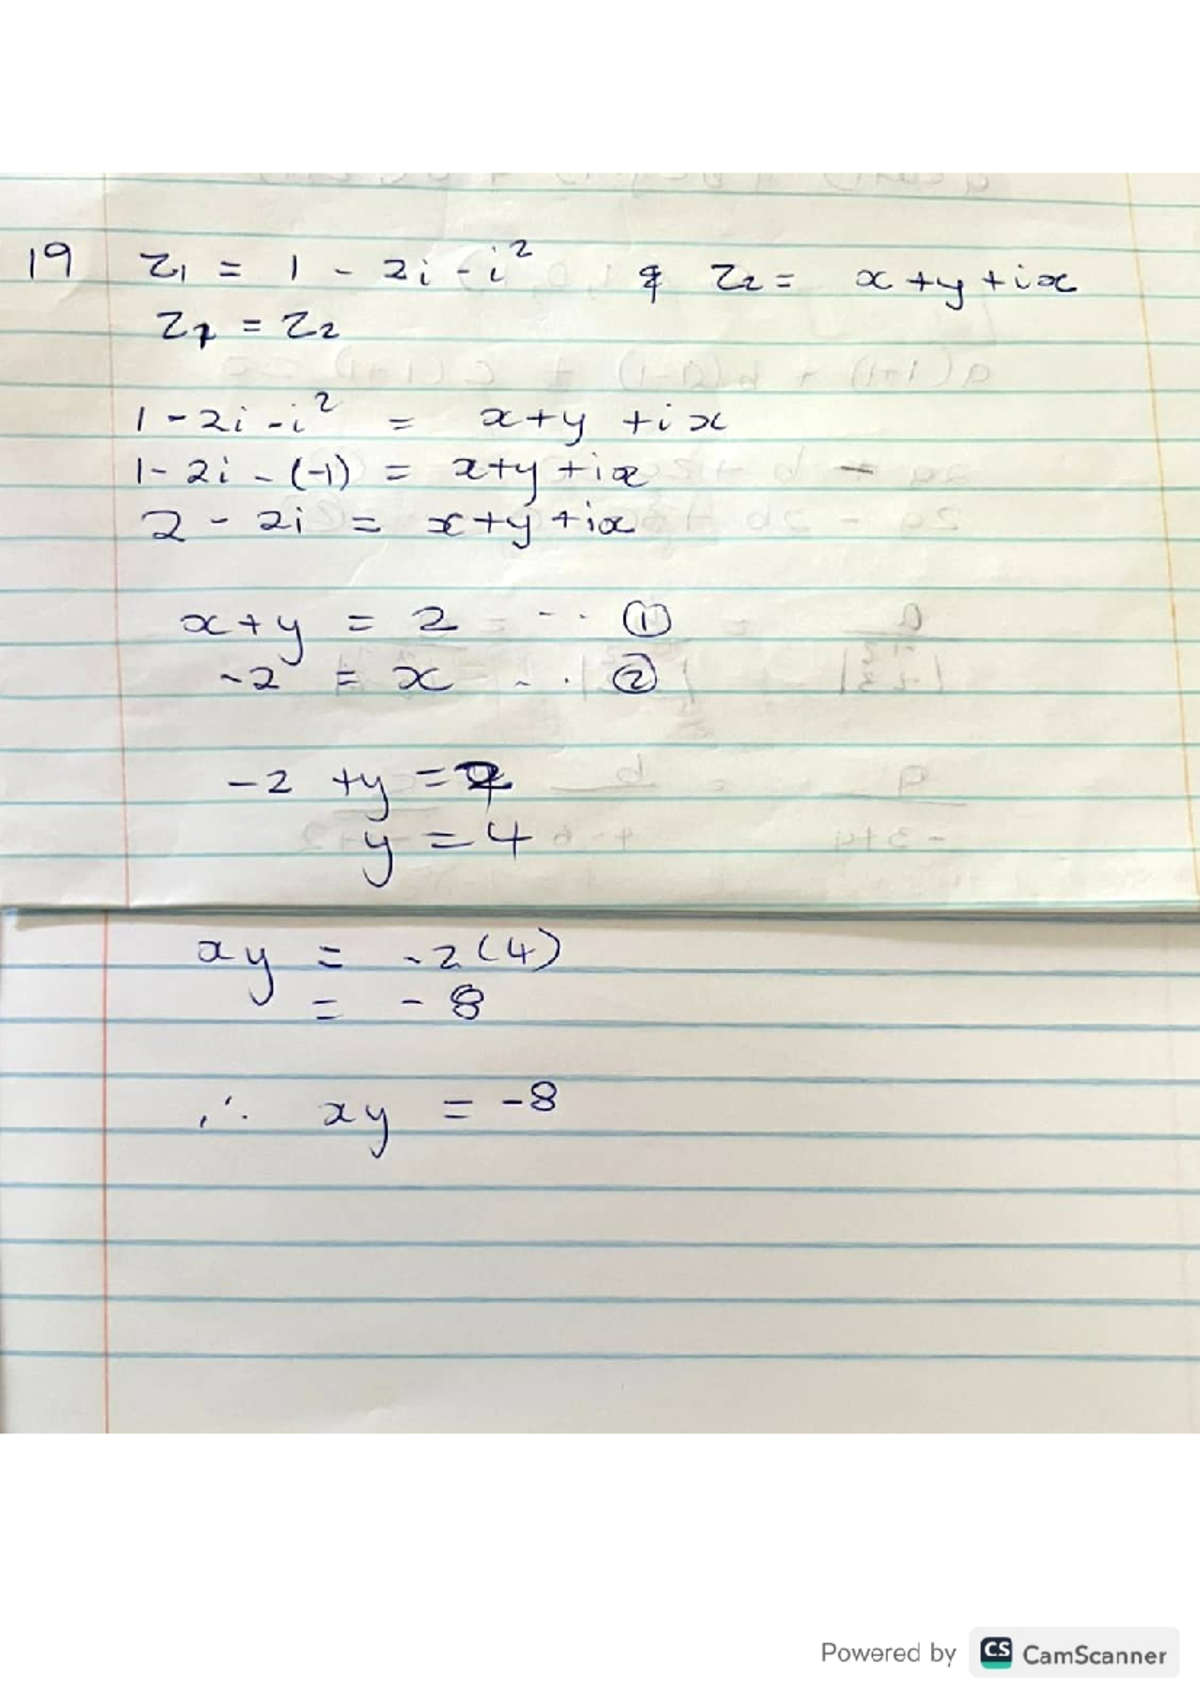 19 z₁ = 1 - 2i - i² & z₂ = x + y + ix
z₁ = z₂
1 - 2i - i² = x + y + ix
1 - 2i - (-1) = x + y + ix
2 - 2i = x + y + ix
x + y = 2 ... ①
-2 = x ... ②
-2 + y = 2
y = 4
xy = -2(4)
= -8
∴ xy = -8
Powered by CS CamScanner